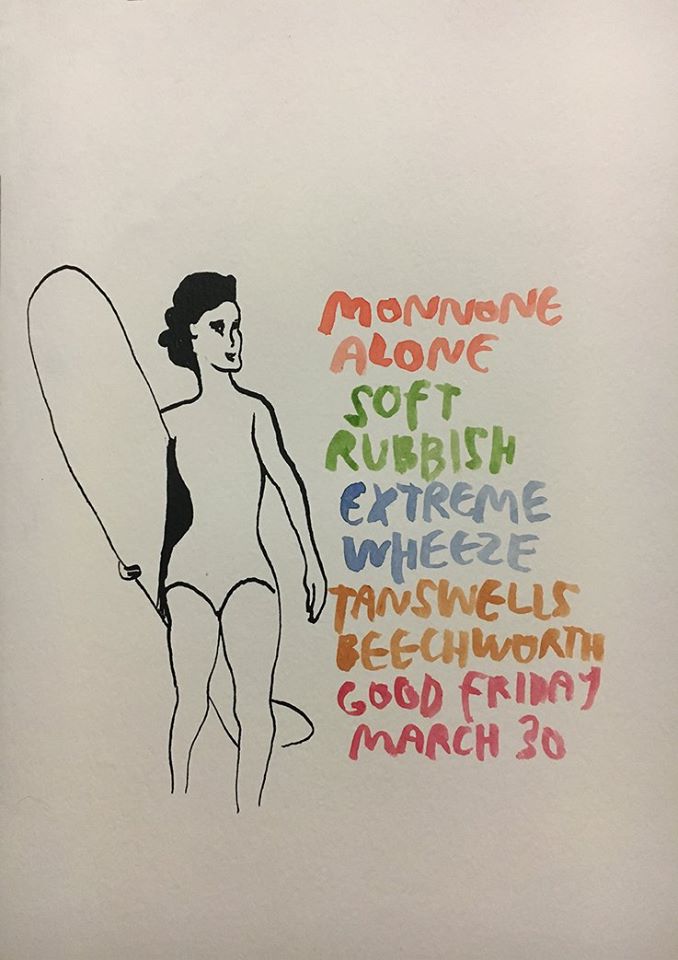 MONNONE
ALONE
SOFT
RUBBISH
EXTREME
WHEEZE
TANSWELLS
BEECHWORTH
GOOD FRIDAY
MARCH 30